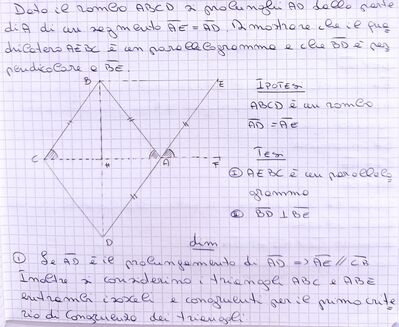 Dato il rombo ABCD si prolunghi AD dalla parte
di A di un segmento AE = AD. Dimostrare che il qua
drilatero AEBC è un parallelogramma e che BD è per
pendicolare a BE.
B
E
IPOTESI
ABCD è un rombo
AD = AE
TESI
C
H
A
F
① AEBC è un parallelo
gramma
② BD ⊥ BE
D
dim
① Se AE è il prolungamento di AD => AE // CB
Inoltre si considerino i triangoli ABC e ABE
entrambi isosceli e congruenti per il primo crite
rio di congruenza dei triangoli.